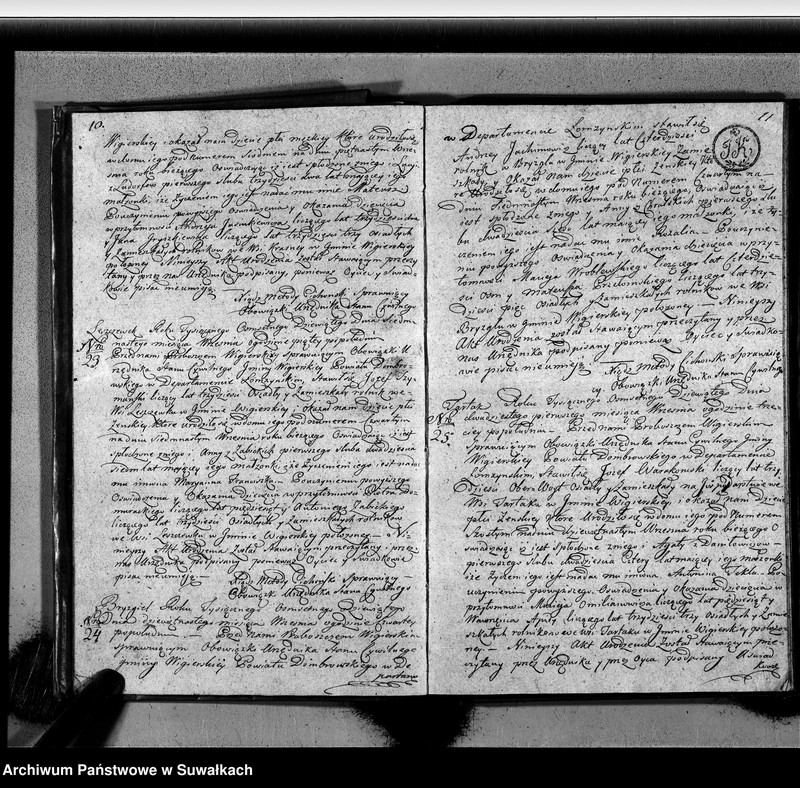 10.
Wigierskiey i okazał nam dziecię płci męskiey które urodziło się
w domu iego pod Numerem siódmem na dniu piętnastym Wrze
śnia roku bieżącego Oświadczaiąc iż iest spłodzone z niego i
pierwszego ślubu trzydzieści dwa lat maiącey iego
małżonki, iż życzeniem iego iest nadać mu imie Mateusz
Po uczynieniu powyższego Oświadczenia y Okazaniu dziecięcia
w przytomności Andrzeia liczącego lat trzydzieści
y Jana liczącego lat trzydzieści trzy Osiadłych
y Zamieszkałych Rolników we Wsi Krasny w Gminie Wigierskiey
położoney Ninieyszy Akt Urodzenia został Stawaiącym przeczy
tany y przez nas Urzędnika podpisany, ponieważ Oyciec y Świad
kowie pisać nieumieią
Xiądz Metody Cichoński Sprawuiący
Obowiązek Urzędnika Stanu Cywilnego
Leszczewek Roku Tysiącznego Osmsetnego Dziewiątego Dnia Siedm
nastego miesiąca Września o godzinie piątey popołudniu
Nro
23
Przed nami Proboszczem Wigierskim Sprawuiącym Obowiązki U
rzędnika Stanu Cywilnego Gminy Wigierskiey Powiatu Dombro
wskiego w Departamencie Łomżynskim, Stawił się Józef Szy
mański liczący lat trzydzieści Osiadły y Zamieszkały rolnik we
Wsi Leszczewku w Gminie Wigierskiey i okazał nam dziecię płci
Żeńskiey, które urodziło się w domu iego pod Numerem Czwartym
na dniu Siedmnastym Września roku bieżącego Oświadczaiąc iż iest
spłodzone z niego i Anny z Zabickich pierwszego ślubu dwadzieścia
siedm lat maiącey iego małżonki, iż życzeniem iego iest nadać
mu imiona Maryanna Franciszka Po uczynieniu powyższego
Oświadczenia y Okazaniu Dziecięcia w przytomności Piotra Do
murackiego liczącego lat pięćdziesiąt y Antoniego Zabickiego
liczącego lat trzydzieści Osiadłych y Zamieszkałych rolników
we Wsi Leszczewku w Gminie Wigierskiey położoney Ni
nieyszy Akt Urodzenia Został Stawaiącym przeczytany i przez
nas Urzędnika podpisany ponieważ Oyciec y Świadkowie
pisać nieumieią
Xiądz Metody Cichoński Sprawuiący
Obowiązek Urzędnika Stanu Cywilnego
Bryzgiel Roku Tysiącznego Osmsetnego Dziewiątego
Nro
24
Dnia dziewiętnastego miesiąca Września o godzinie czwartey
popołudniu Przed nami Proboszczem Wigierskim
sprawuiącym Obowiązki Urzędnika Stanu Cywilnego
Gminy Wigierskiey Powiatu Dombrowskiego w De
partame
11
w Departamencie Łomżynskim stawił się
Andrzey Jachimowicz liczący lat Czterdzieści
rolnik w Bryzglu w Gminie Wigierskiey Zamie
szkały, i Okazał nam dziecię płci Żeńskiey Któ
re Urodziło się w domu iego pod Numerem Czwartym na
dniu Siedmnastym Września roku bieżącego, Oświadczaiąc iż
iest spłodzone z niego y Anny pierwszego Ślu
bu dwadzieścia Siedm lat maiącey iego małżonki, iż ży
czeniem iego iest nadać mu imie Rozalia Po uczynie
niu powyższego Oświadczenia y Okazania dziecięcia w przy
tomności Macieja Wroblewskiego liczącego lat Czterdzie
ści Osm y Mateusza Przełomskiego liczącego lat trzy
dzieści pięć Osiadłych y Zamieszkałych rolników we Wsi
Bryzglu w Gminie Wigierskiey położoney Ninieyszy
Akt Urodzenia został Stawaiącym przeczytany y przez
nas Urzędnika podpisany ponieważ Oyciec y Świadko
wie pisać nieumieią Xiądz Metody Cichoński Sprawuią
cy Obowiązek Urzędnika Stanu Cywilnego
Tartak Roku Tysiącznego Osmsetnego Dziewiątego Dnia
Nro
25
dwudziestego pierwszego miesiąca Września o godzinie trze
ciey popołudniu Przed nami Proboszczem Wigierskim
Sprawuiącym Obowiązki Urzędnika Stanu Cywilnego Gminy
Wigierskiey Powiatu Dombrowskiego w Departamencie
Łomżynskim, Stawił się Józef Warakomski liczący lat trzy
dzieści Osiadły y Zamieszkały na we
Wsi Tartaku w Gminie Wigierskiey, i okazał nam Dziecię
płci Żeńskiey Które Urodziło się w domu iego pod Numerem
Szóstym na dniu dziewiętnastym Września roku bieżącego O
świadczaiąc iż iest Spłodzone z niego i Agaty z Daniłowiczow
pierwszego Ślubu dwadzieścia Cztery lat maiącey iego małżonki
iż życzeniem iego iest nadać mu imiona Antonina Tekla Po
uczynieniu powyższego Oświadczenia y Okazania dziecięcia w
przytomności Macieja Omilianowicza liczącego lat pięćdziesiąt y
Wawrzyńca liczącego lat trzydzieści trzy Osiadłych y Zamie
szkałych rolników we Wsi Tartaku w Gminie Wigierskiey położo
ney Ninieyszy Akt Urodzenia Został Stawaiącym prze
czytany przez Urzędnika y przez Oyca podpisany Świad
kowie
Archiwum Państwowe w Suwałkach